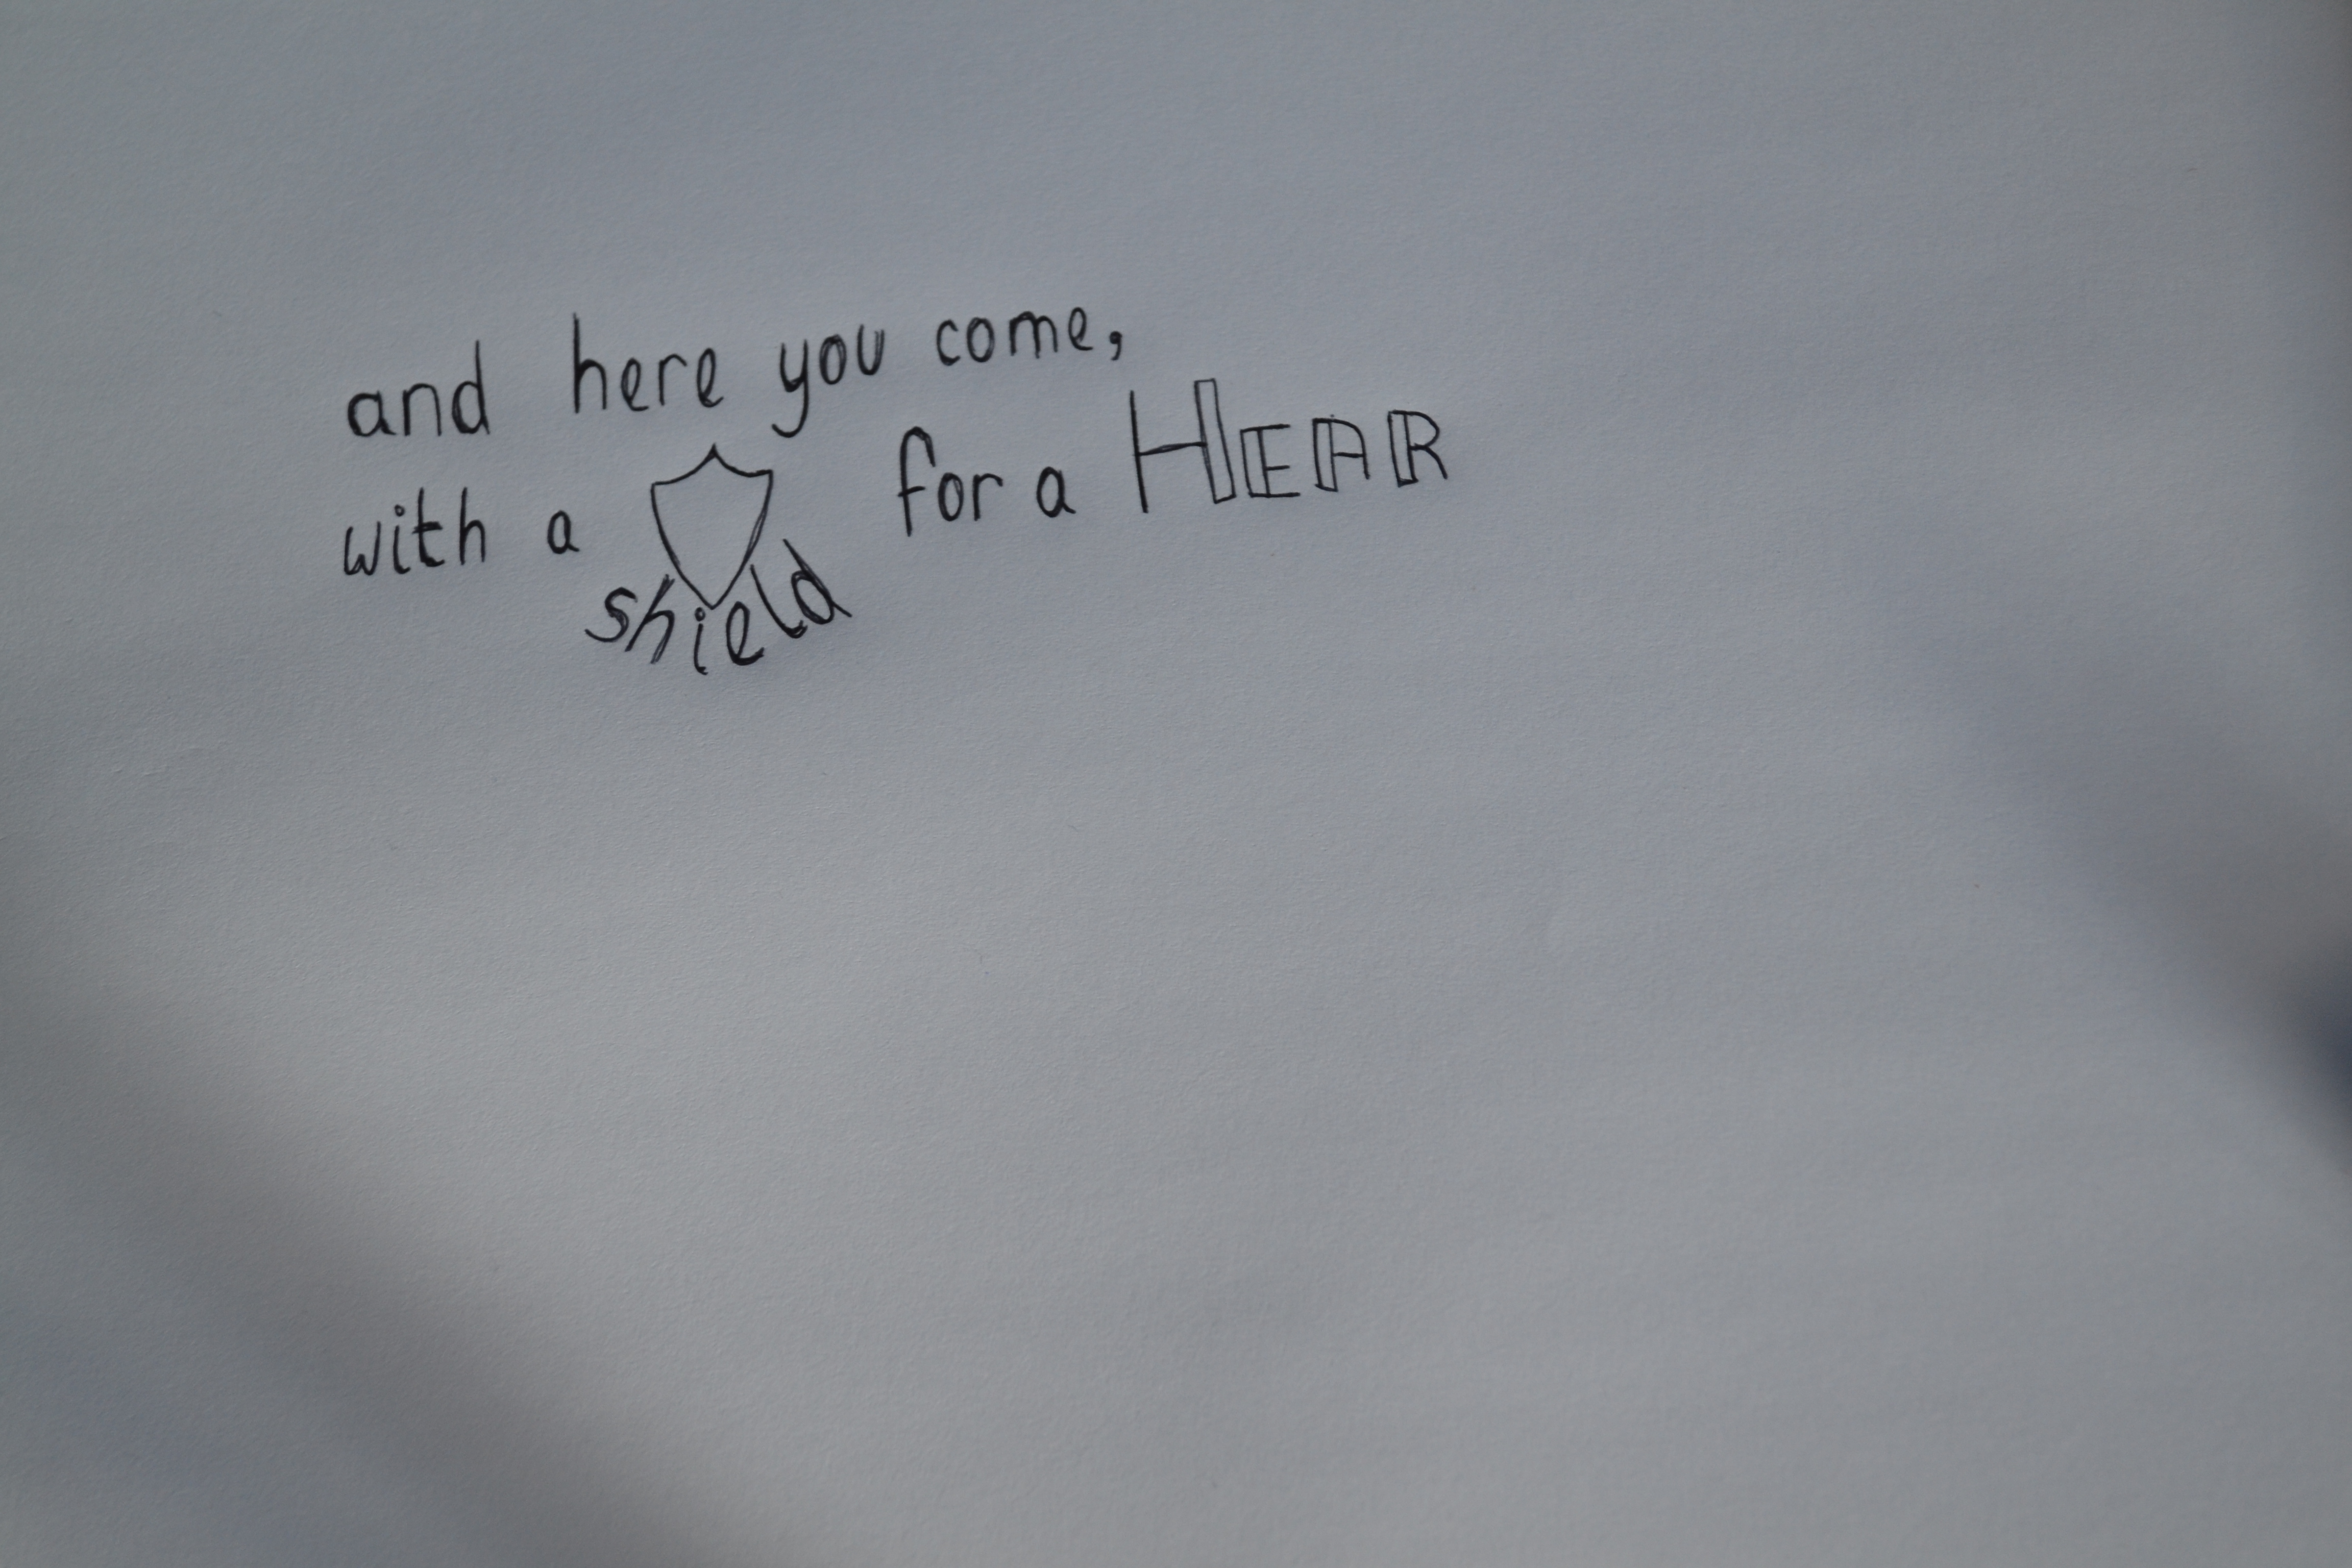 and here you come,
with a shield for a HEAR